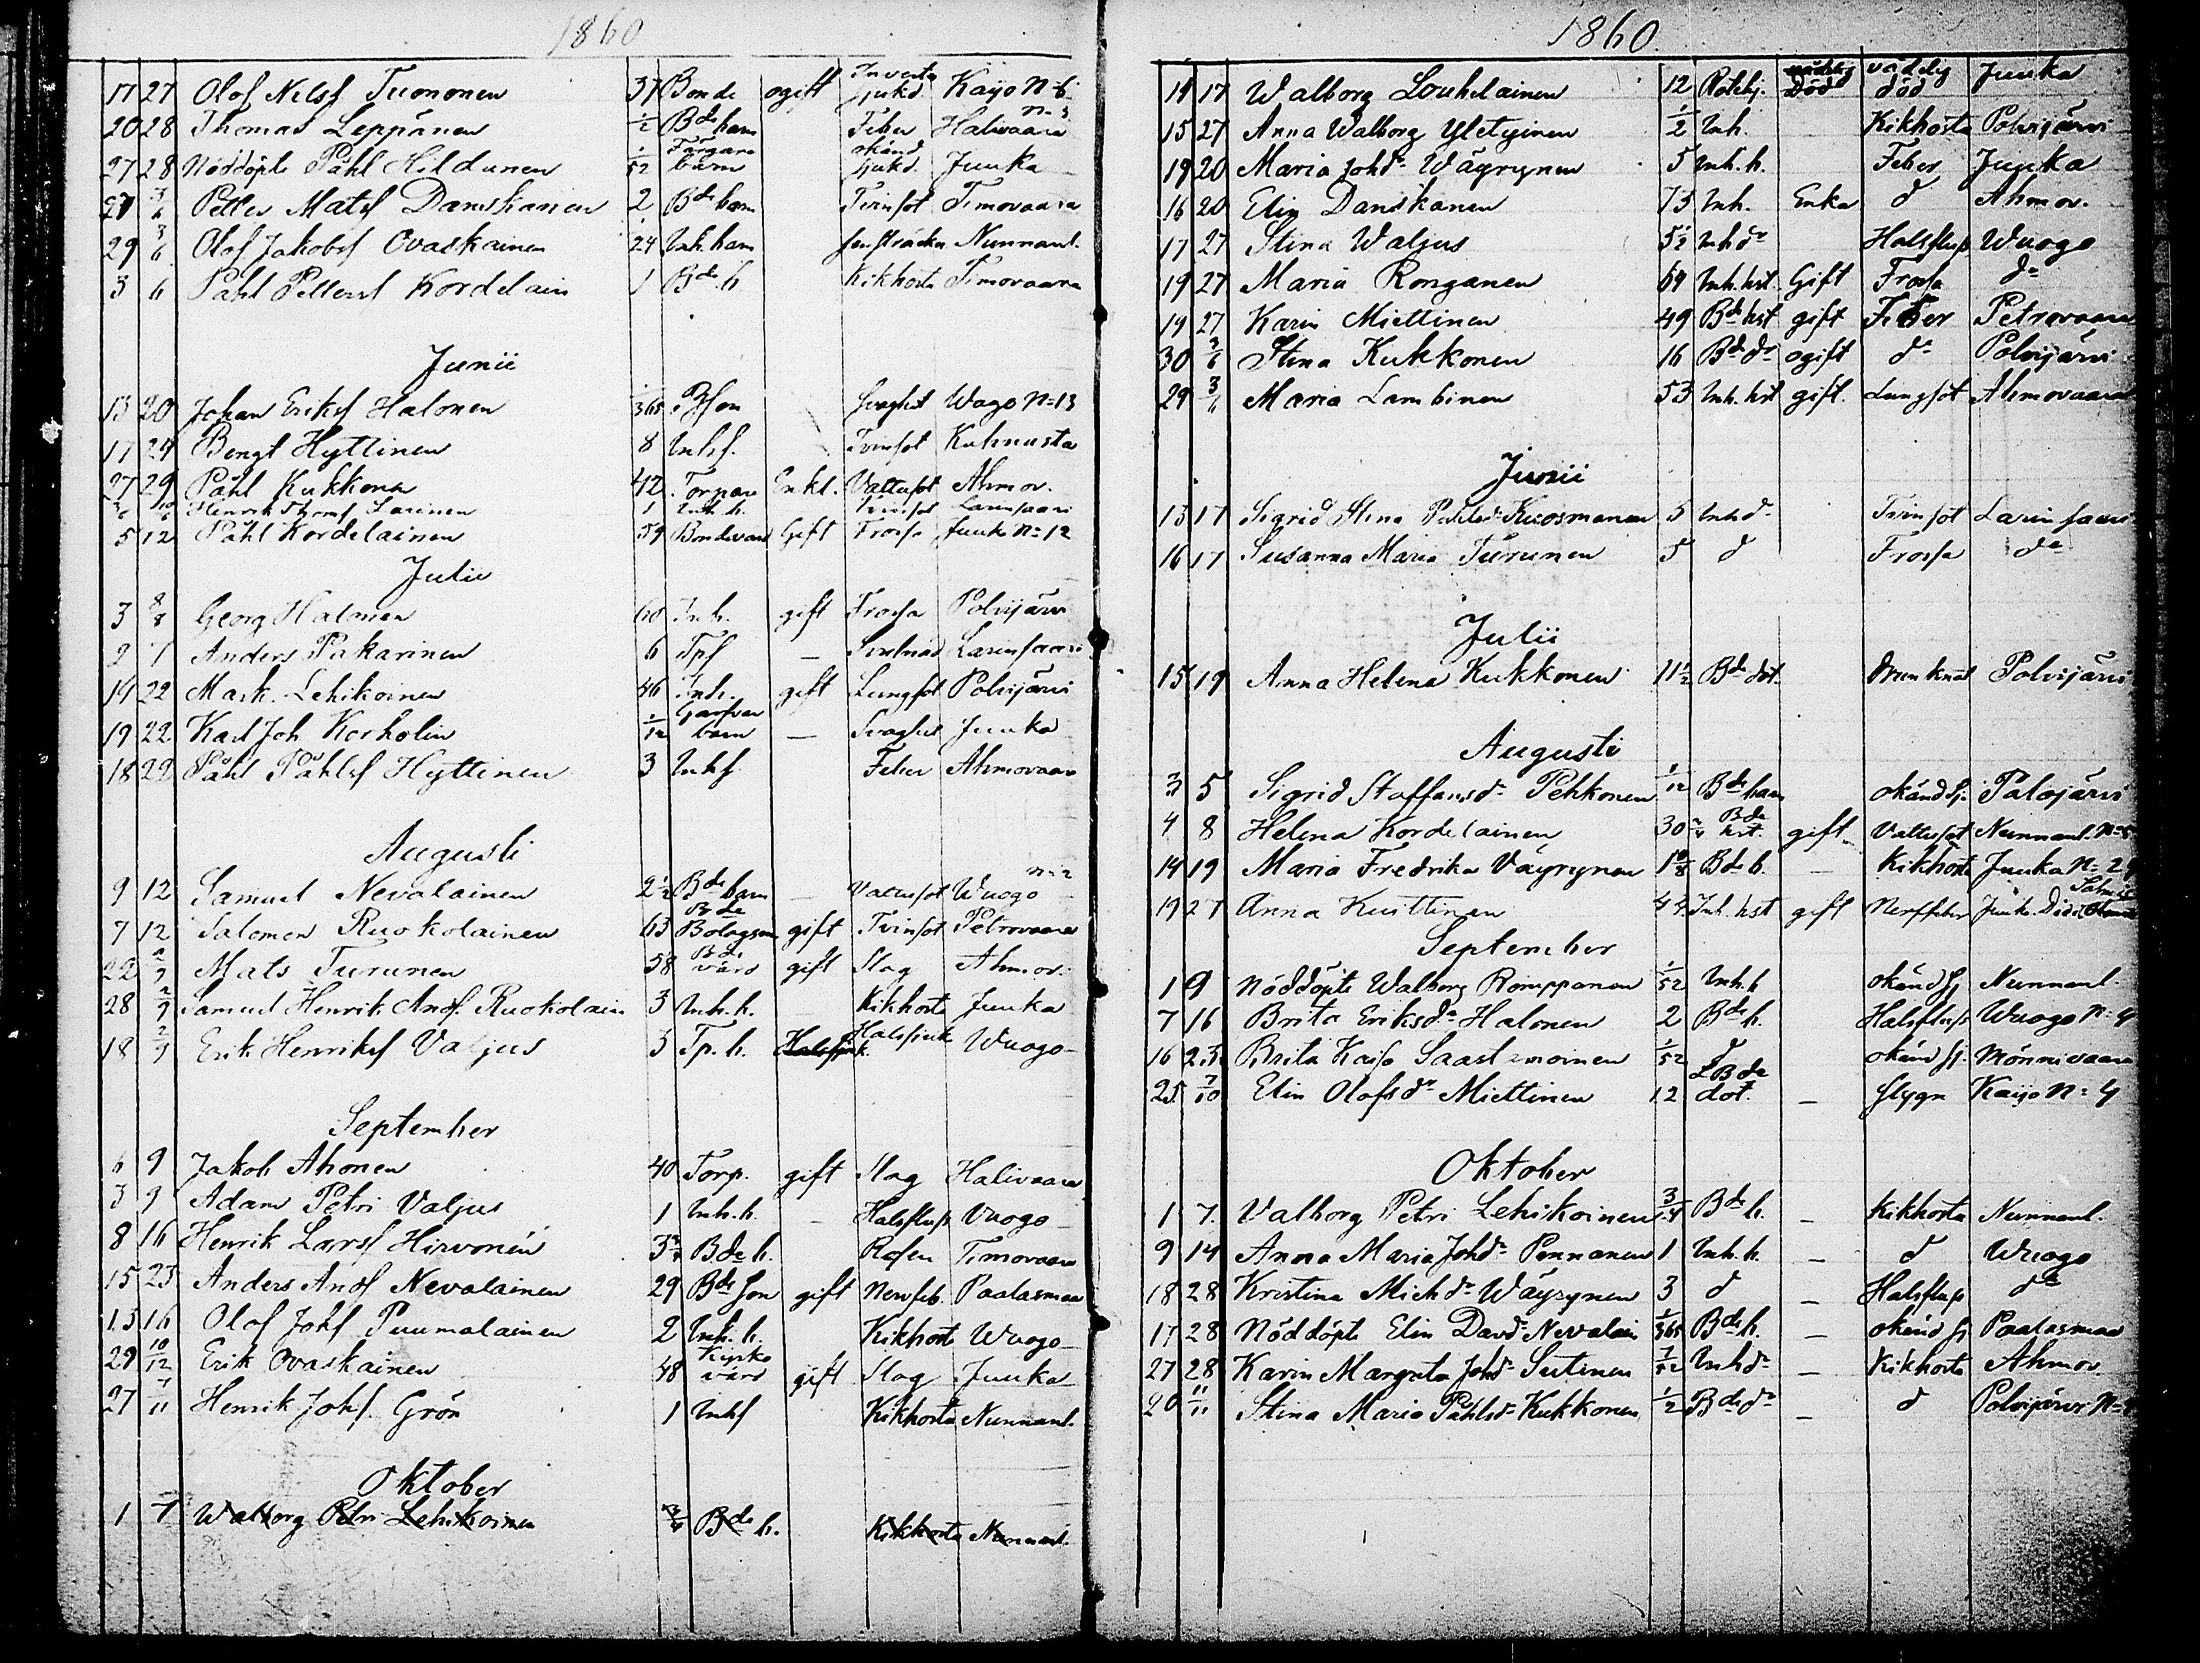 1860
17 27 Olof Nilsf Tuononen 37 Bonde ogift Invertes sjukd Kajo N=6
20 28 Thomas Leppänen 1/2 Bde barn Feber Halivaara N=3
27 28 Nöddöpte Påhl Hildunen 1/52 Färgare barn okänd sjukd. Juuka
27 3/6 Petter Matsf Danskanen 2 Bde barn Tvinsot Timovaara
29 3/6 Olof Jakobsf Ovaskainen 1/24 Inh. barn Nunnanl.
3 6 Påhl Pettersf Kordelain 1 Bde b Kikhosta Timovaara
Junii
13 20 Johan Eriksf Halonen 1/365 Bf son Svaghet Wuogo N=13
17 24 Bengt Hyttinen 8 Inhf. Tvinsot Kuhnusta
27 29 Påhl Kukkonen 42 Torpare Enkl. Vattusot Ahmov.
3/6 10/6 Henrik Thomsf Sarinen 1 Inh b. Tvinsot Larinsaari
5 12 Påhl Kordelainen 59 Bondevärd Gift Frossa Juuka N=12
Julii
3 8/8 Georg Halonen 60 Inh. gift Frossa Polvijärvi
2 7 Anders Pakarinen 6 Tpf — Larinsaari
19 22 Mark. Lehikoinen 46 Inh. gift Lungsot Polvijärvi
19 22 Karl Joh Korholin 1/12 Garfvar barn — Svaghet Juuka
18 22 Påhl Påhlsf Hyttinen 3 Inhf Feber Ahmovaara
Augusti
9 12 Samuel Nevalainen 2 1/2 Bde barn — Vattusot Wuogo N=2
7 12 Salomon Ruokolainen 63 Bde Bolagsm gift Tvinsot Petrovaara
22 2/9 Mats Turunen 58 Bde värd gift Slag Ahmov.
28 2/9 Samuel Henrik Andf. Ruokolain 3 Inh. b. Kikhosta Juuka
18 2/9 Erik Henriksf Valjus 3 Tp. b. Halssjuk. Halssjuk Wuogo
September
6 9 Jakob Ahonen 40 Torp. gift Slag Halivaara
3 9 Adam Petri Valjus 1 Inh. b. — Halsfluss Vuogo
8 16 Henrik Larsf Hirvonen 3 Bde b. Rosen Timovaara
15 23 Anders Andf Nevalainen 29 Bde son gift Nervfeb. Paalasmaa
13 16 Olof Johf Puumalainen 2 Inh. b. Kikhosta Wuogo
29 10/12 Erik Ovaskainen 48 Kyrko värd gift Slag Juuka
27 7/11 Henrik Johf. Grön 1 Inhf Kikhosta Nunnanl.
Oktober
1 7 Walborg Petri Lehikoinen 3/4 Bde b. Kikhosta Nunnanl.
1860.
14 17 Walborg Louhelainen 12 Rotehj. vådlig död vådlig död Juuka
15 27 Anna Walborg Yletyinen 1/2 Inh. Kikhosta Polvijärvi
19 20 Maria Johdr Wäyrynen 5 Inh. b. Feber Juuka
16 20 Elin Danskanen 73 Inh. Enka d Ahmov.
17 27 Stina Waljus 5 1/2 Inh dr Halsfluss Wuogo
19 27 Maria Ronganen 64 Inh. hst. Gift Frossa do
19 27 Karin Miettinen 49 Bde hst gift Feber Petrovaara
30 3/6 Stina Kukkonen 16 Bde dr ogift do Polvijärvi
29 3/6 Maria Lambinen 53 Inh. hst gift. Lungsot Ahmovaara
Junii
13 17 Sigrid Stina Påhlsdr Kuosmanen 5 Inh dr Tvinsot Larinsaari
16 17 Susanna Maria Turunen 5 d Frossa do
Julii
15 19 Anna Helena Kukkonen 11 1/2 Bde dot. drunknad Polvijärvi
Augusti
3 5 Sigrid Staffansdr Pehkonen 1/12 Bde barn okänd sj. Polvijärvi
4 8 Helena Kordelainen 30 Bde hst. gift Vattusot Nunnanl. N=5
14 19 Maria Fredrika Väyrynen 1 Bde b. — Kikhosta Juuka N=24
19 27 Anna Kuittinen 44 Inh. hst gift Nervfeber Juuka.
September
1 9 Nöddöpte Walborg Romppanen 1/52 Inh. b okänd sj Nunnanl.
7 16 Brita Eriksdr Halonen 2 Bde b. Halsfluss Wuogo N=4
16 23 Brita Kajsa Saastamoinen 1/52 d okänd sj. Mönnivaara
25 7/10 Elin Olofsdr Miettinen 12 LBde dot. — slygn Kajo N=4
Oktober
1 7. Valborg Petri Lehikoinen 3/4 Bde b. — Kikhosta Nunnanl.
9 14 Anna Maria Johdr Pennanen 1 Inh. b. — d Wuogo
18 28 Kristina Mich dr Wäyrynen 3 d — Halsfluss do
17 28 Nöddöpte Elin Davdr Nevalain 1/365 Bde b. — okänd sj Paalasmaa
27 28 Karin Margreta Johdr Sutinen 7/52 Inh dr — Kikhosta Ahmov.
20 11/11 Stina Maria Påhlsdr Kukkonen 1/2 Bde dr — d Polvijärvi